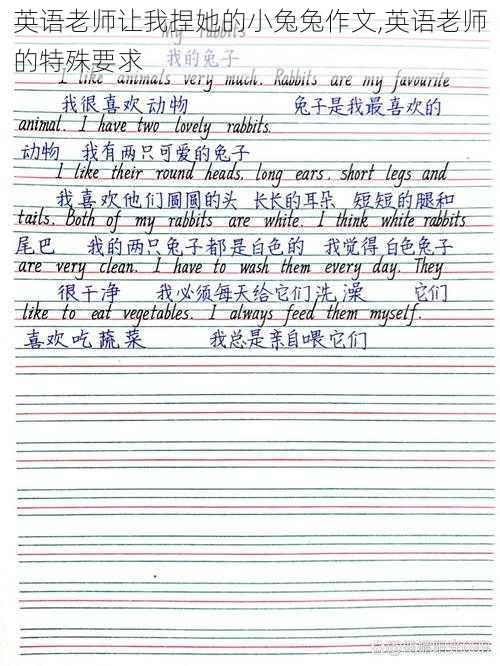 英语老师让我捏她的小兔兔作文,英语老师
的特殊要求
My rabbits
我的兔子
I like animals very much. Rabbits are my favourite
我很喜欢动物 兔子是我最喜欢的
animal. I have two lovely rabbits.
动物 我有两只可爱的兔子
I like their round heads, long ears, short legs and
我喜欢他们圆圆的头 长长的耳朵 短短的腿和
tails. Both of my rabbits are white. I think white rabbits
尾巴 我的两只兔子都是白色的 我觉得白色兔子
are very clean. I have to wash them every day. They
很干净 我必须每天给它们洗澡 它们
like to eat vegetables. I always feed them myself.
喜欢吃蔬菜 我总是亲自喂它们